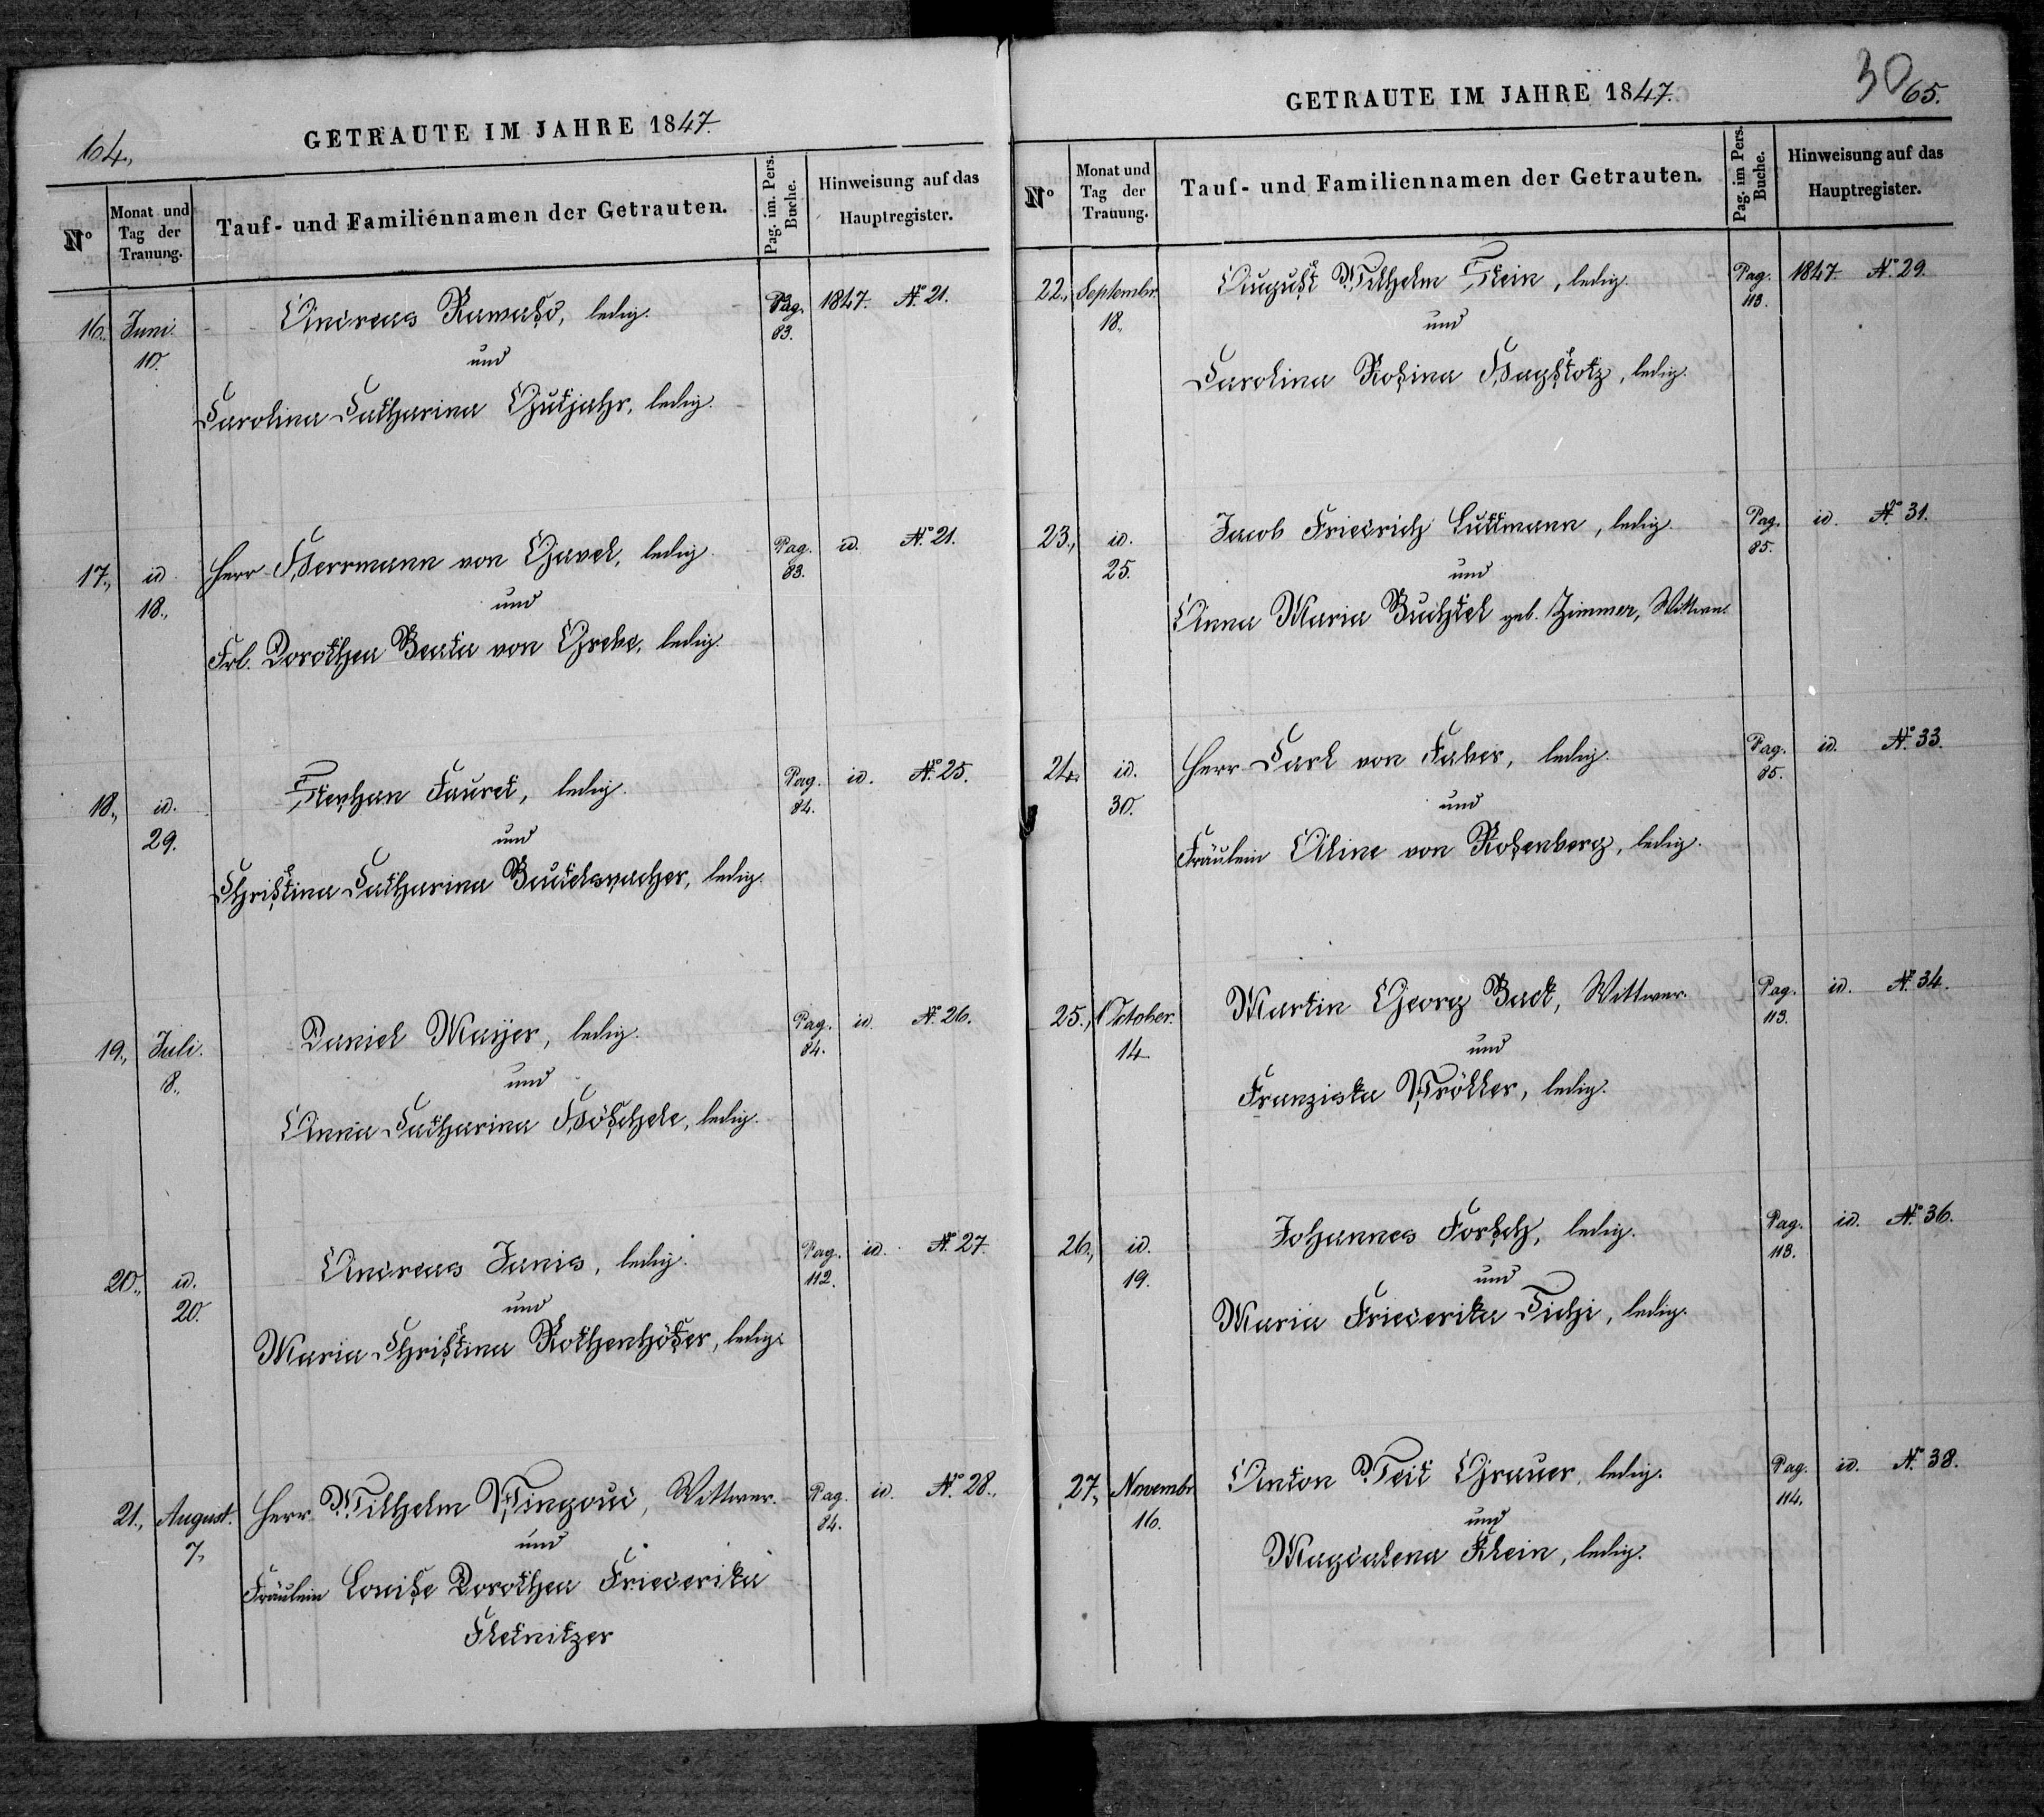 64.
GETRAUTE IM JAHRE 1847.
N° Monat und Tag der Trauung. Tauf- und Familiennamen der Getrauten. Pag. im Pers. Buche. Hinweisung auf das Hauptregister.
16. Juni Andreas Ramasd, ledig. Pag. 1847. No. 21.
10. und 83.
Carolina Catharina Gutjahr, ledig.
17. id Herr Herrmann von Gavel, ledig. Pag. id. No. 21.
18. und 83.
Frl. Dorothea Beata von Greve, ledig.
18. id. Stephan Fauret, ledig. Pag. id. No. 25.
29. und 84.
Christina Catharina Beutelspacher, ledig.
19. Juli. Daniel Mayer, ledig. Pag. id. No. 26.
8. und 84.
Anna Catharina Höschele, ledig.
20. id. Andreas Janis, ledig. Pag. id. No. 27.
20. und 112.
Maria Christina Rothenhöfer, ledig.
21. August. Herr Wilhelm Wingoud, Wittwer. Pag. id. No. 28.
7. und 84.
Fräulein Louise Dorothea Friederika
Fletnitzer
30 65.
GETRAUTE IM JAHRE 1847.
N° Monat und Tag der Trauung. Tauf- und Familiennamen der Getrauten. Pag. im Pers. Buche. Hinweisung auf das Hauptregister.
22. Septembr. August Wilhelm Stein, ledig. Pag. 1847. No. 29.
18. und 113.
Carolina Rosina Hagstotz, ledig.
23. id. Jacob Friedrich Luttmann, ledig. Pag. id. No. 31.
25. und 85.
Anna Maria Buchtel geb. Zimmer, Wittwe.
24. id. Herr Carl von Faber, ledig. Pag. id. No. 33.
30. und 85.
Fräulein Aline von Rosenberg, ledig.
25. October. Martin Georg Back, Wittwer. Pag. id. No. 34.
14 und 113.
Franziska Pröller, ledig.
26. id. Johannes Forsch, ledig. Pag. id. No. 36.
19. und 113.
Maria Friederika Tichi, ledig.
27. Novembr Anton Veit Grauer, ledig. Pag. id. No. 38.
16. und 114.
Magdalena Klein, ledig.